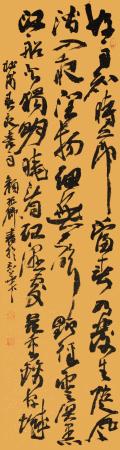 好雨知時節當春乃發生隨風
潛入夜潤物細無聲野徑雲俱黑
江船火獨明曉看紅濕處花重錦官城
杜甫春夜喜雨 書於